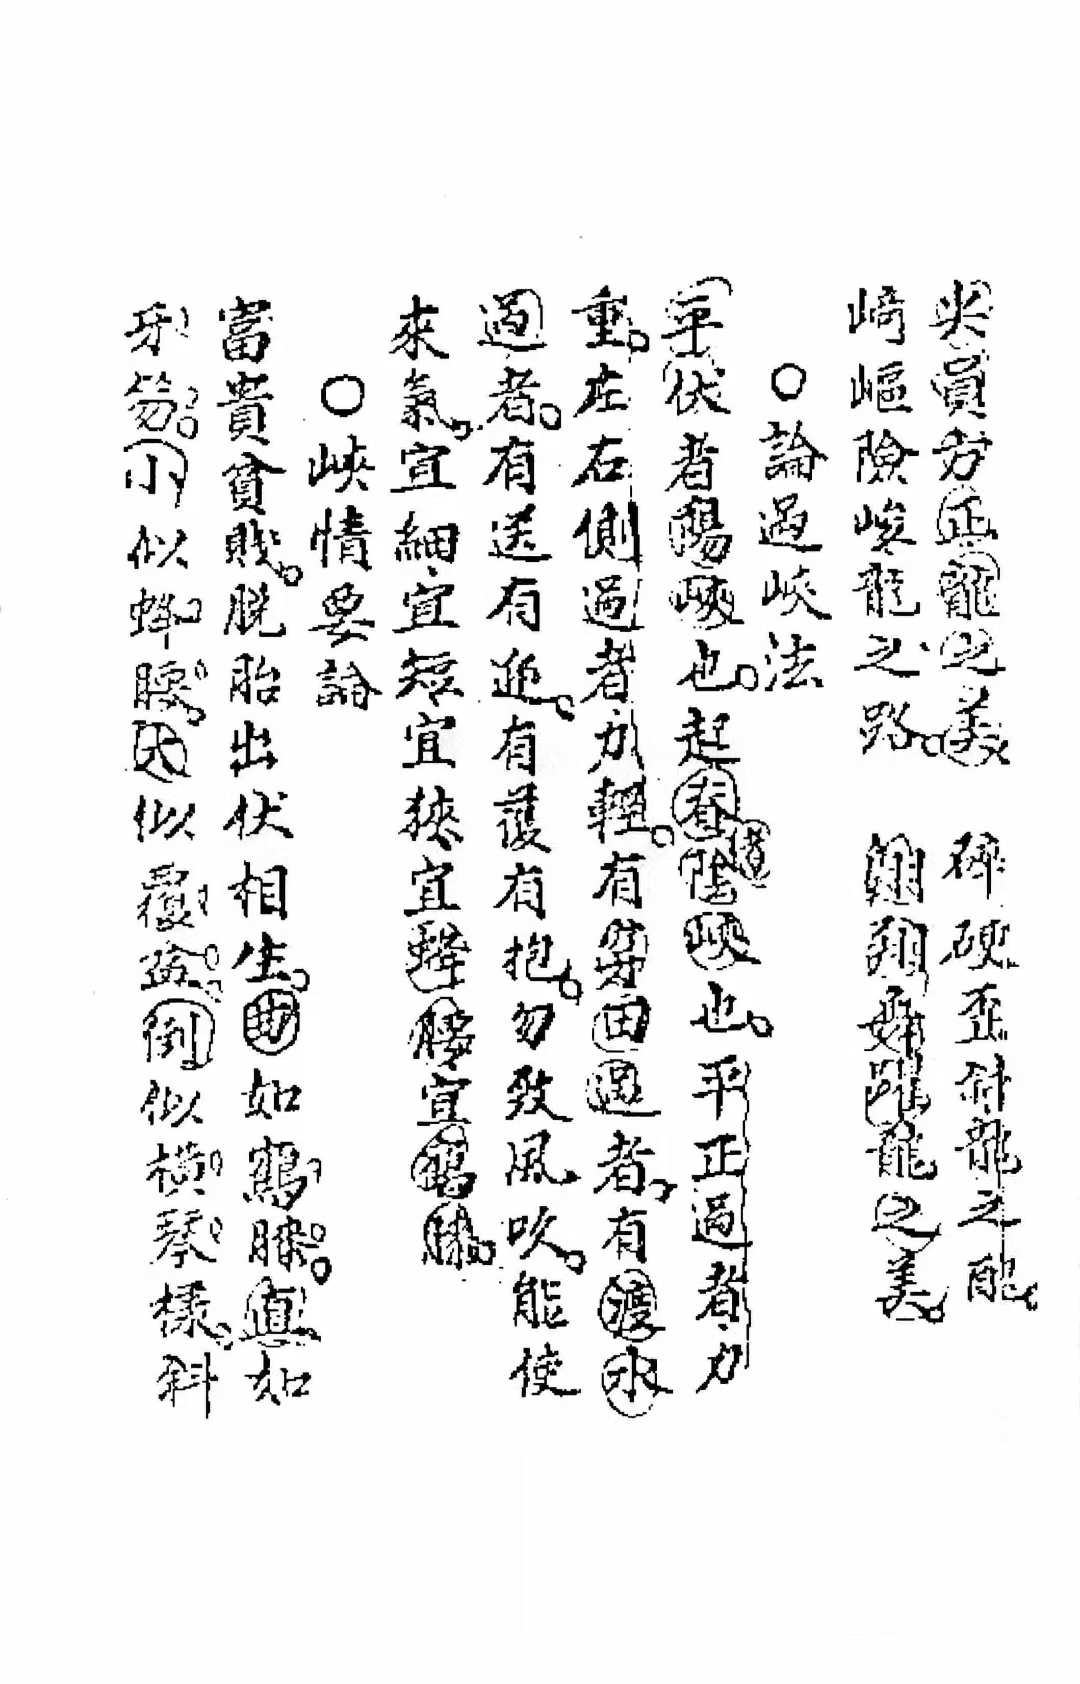 尖員方正龍之美　碎硬歪斜龍之醜
崎嶇險峻龍之路　翱翔舞躍龍之美
○論過峽法
平伏者陽峽也起脊陰峽也平正過者力
道
重左右側過者力輕有穿田過者有渡水
過者有送有迎有護有抱勿致風吹能使
來氣宜細宜短宜狹宜蜂腰宜鶴膝
○峽情要論
富貴貧賤脫胎出伏相生曲如鶴膝直如
牙笏小似蜂腰大似覆盆倒似橫琴樣斜